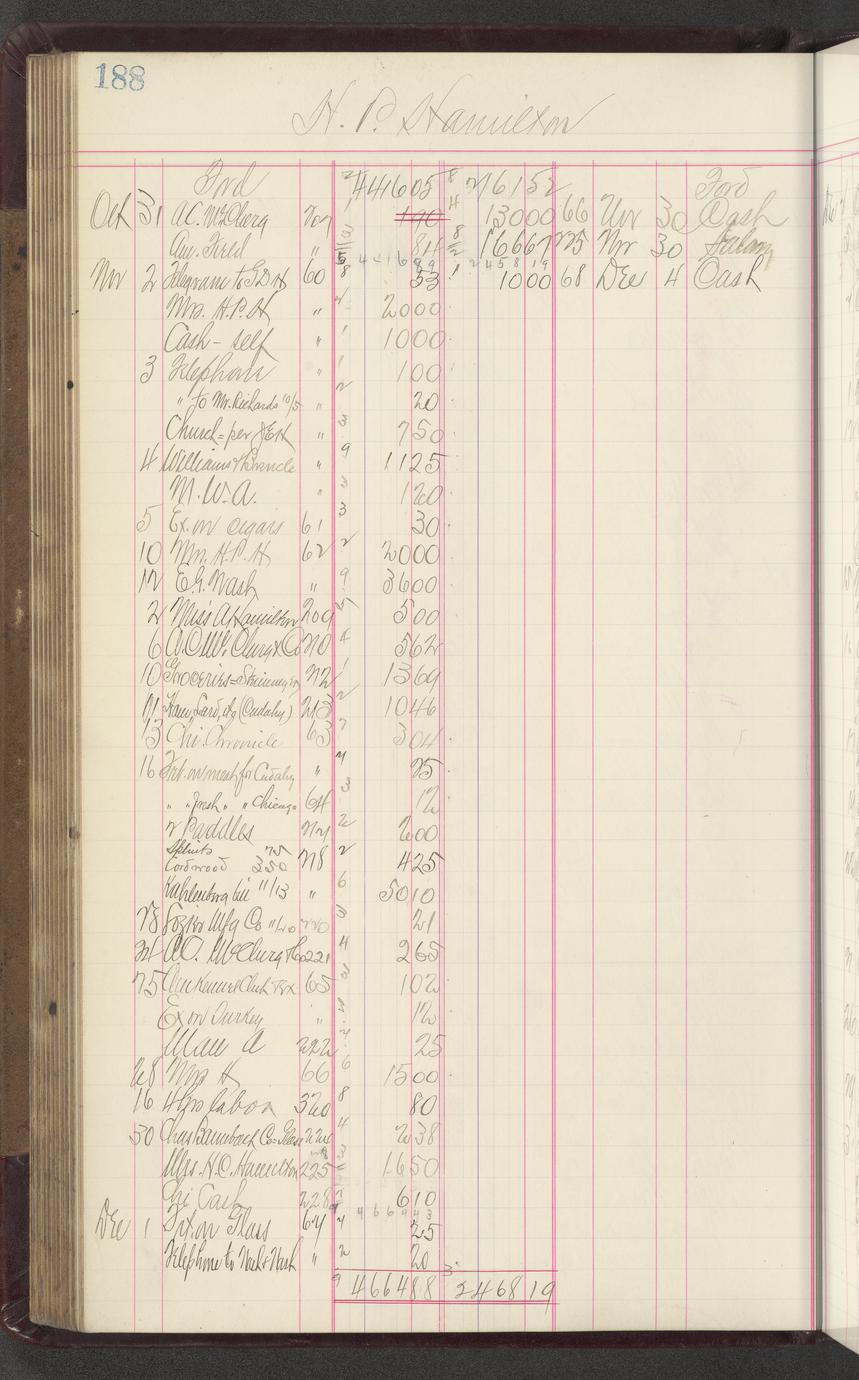 188
H. P. Hamilton
Ford 441605 216152 Ford
Oct 31 A.C. McClurg 207 190 13000 66 Nov 30 Cash
Am. Field " 84 16667 225 Nov 30 Salary
441689 245819
Nov 2 Telegrams to E.D.H 60 53 1000 68 Dec 4 Cash
Mrs. H.P.H " 2000
Cash - self " 1000
3 Telephone " 100
" to Mr. Richards 10/5 " 20
Church = per JEH " 750
4 Williams & " 1125
M.W.A. " 120
5 Ex. on cigars 61 30
10 Mrs. H.P.H 62 2000
12 E.G. Nash " 3600
2 Miss A Hamilton 209 500
6 A.C. McClurg & Co 210 562
10 Groceries = 212 1369
11 Ham, Lard, etc (Cudahy) 213 1046
13 Chi. Chronicle 63 304
16 Frt. on meat for Cudahy " 25
" " fresh " " Chicago 64 12
2 Paddles 217 200
Splints 75
Cordwood 350 218 425
Kahlenberg bill 11/13 " 5010
23 Mfg Co 11/20 220 21
24 A.C. McClurg & Co 221 265
25 65 102
Ex on Turkey " 12
222 25
28 Mrs H 66 1500
16 4 hrs labor 320 80
30 Chas Baumbach Co = Glass 224 238
Mrs. H.C. Hamilton 225 1650
Chi Cash 228 610
466443
Dec 1 Frt. on Glass 67 25
Telephone to Nash & Nash " 20
466488 246819